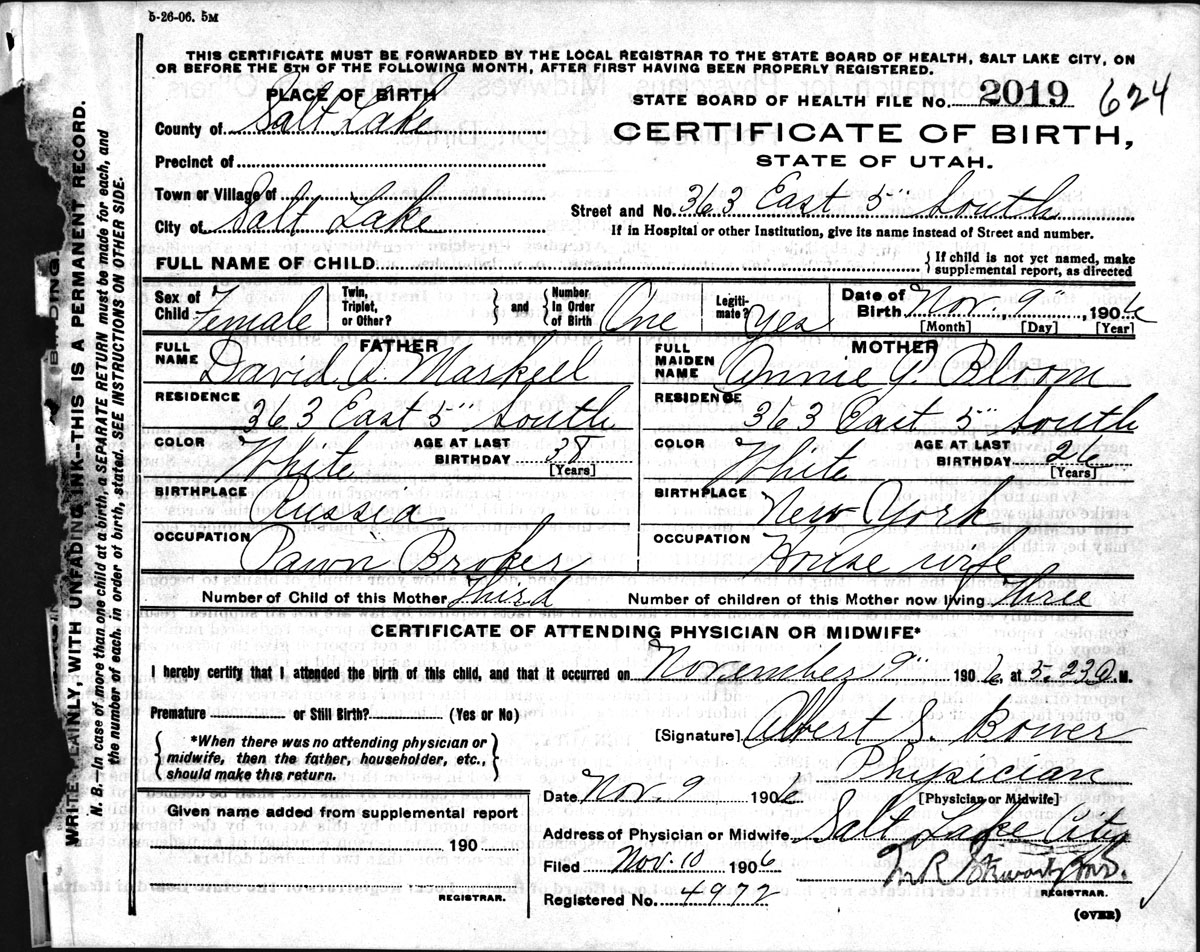 5-26-06. 5M
THIS CERTIFICATE MUST BE FORWARDED BY THE LOCAL REGISTRAR TO THE STATE BOARD OF HEALTH, SALT LAKE CITY, ON
OR BEFORE THE 5TH OF THE FOLLOWING MONTH, AFTER FIRST HAVING BEEN PROPERLY REGISTERED.
PLACE OF BIRTH
County of Salt Lake
Precinct of
Town or Village of
City of Salt Lake
STATE BOARD OF HEALTH FILE No. 2019 624
CERTIFICATE OF BIRTH,
STATE OF UTAH.
Street and No. 363 East 5" South
If in Hospital or other Institution, give its name instead of Street and number.
FULL NAME OF CHILD { If child is not yet named, make
supplemental report, as directed
Sex of Child Female
Twin, Triplet, or Other? } and { Number in Order of Birth One
Legitimate? Yes
Date of Birth Nov. 9", 1906
[Month] [Day] [Year]
FATHER
FULL NAME David A. Maskell
RESIDENCE 363 East 5" South
COLOR White AGE AT LAST BIRTHDAY 38 [Years]
BIRTHPLACE Russia
OCCUPATION Pawn Broker
MOTHER
FULL MAIDEN NAME Annie J. Bloom
RESIDENCE 363 East 5" South
COLOR White AGE AT LAST BIRTHDAY 26 [Years]
BIRTHPLACE New York
OCCUPATION House wife
Number of Child of this Mother Third Number of children of this Mother now living Three
CERTIFICATE OF ATTENDING PHYSICIAN OR MIDWIFE*
I hereby certify that I attended the birth of this child, and that it occurred on November 9" 1906, at 5.23 a M.
Premature or Still Birth? (Yes or No)
{ *When there was no attending physician or
midwife, then the father, householder, etc.,
should make this return. }
[Signature] Albert S. Bower
Physician
[Physician or Midwife]
Date Nov. 9 1906
Address of Physician or Midwife Salt Lake City
Given name added from supplemental report
190
REGISTRAR.
Filed Nov. 10 1906
M R Stewart M.D.
REGISTRAR.
Registered No. 4972
(OVER)
WRITE PLAINLY, WITH UNFADING INK—THIS IS A PERMANENT RECORD.
N. B. In case of more than one child at a birth, a SEPARATE RETURN must be made for each, and
the number of each, in order of birth, stated. SEE INSTRUCTIONS ON OTHER SIDE.